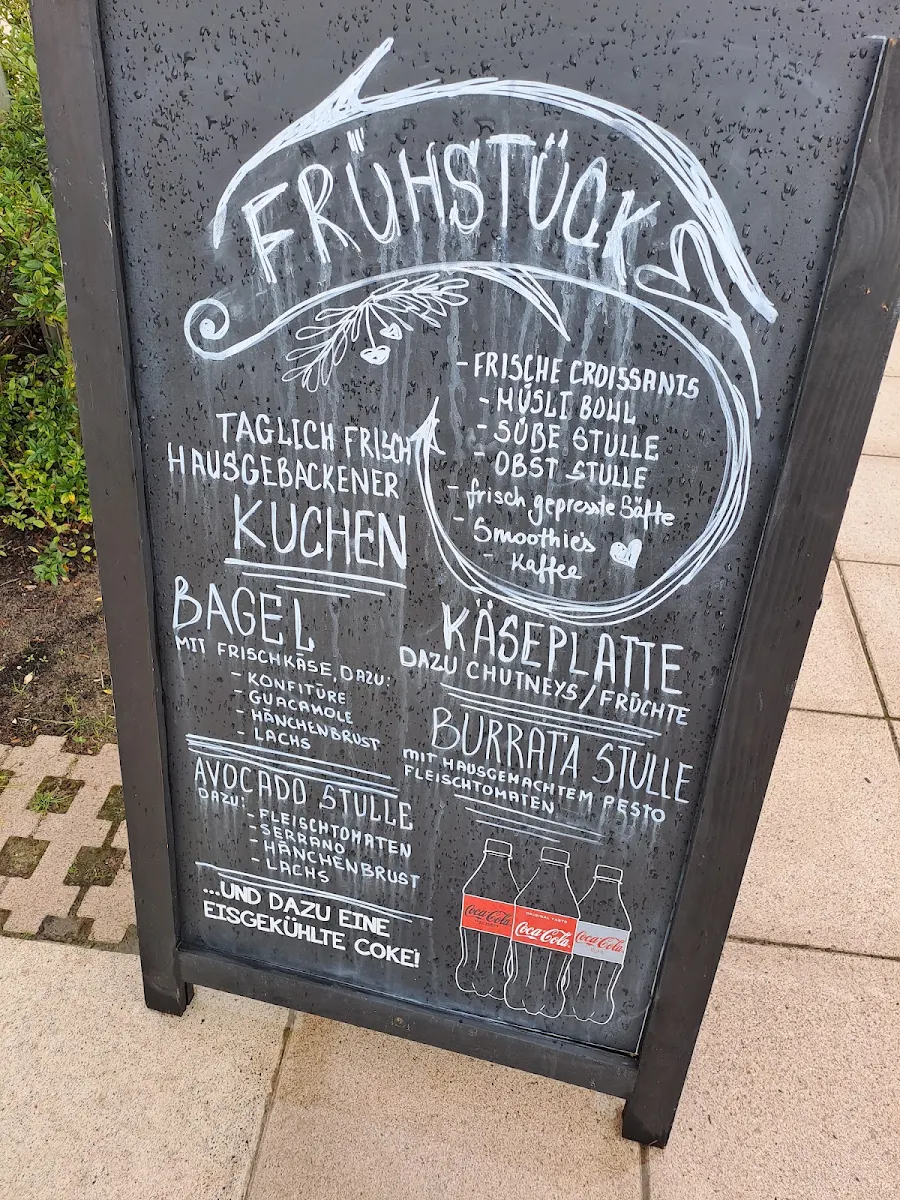 FRÜHSTÜCK
- FRISCHE CROISSANTS
- MÜSLI BOWL
- SÜßE STULLE
- OBST STULLE
- frisch gepresste Säfte
- Smoothie's
- Kaffee
TÄGLICH FRISCH
HAUSGEBACKENER
KUCHEN
BAGEL
MIT FRISCHKÄSE, DAZU:
- KONFITÜRE
- GUACAMOLE
- HÄNCHENBRUST
- LACHS
AVOCADO STULLE
DAZU: - FLEISCHTOMATEN
- SERRANO
- HÄNCHENBRUST
- LACHS
...UND DAZU EINE
EISGEKÜHLTE COKE!
KÄSEPLATTE
DAZU CHUTNEYS / FRÜCHTE
BURRATA STULLE
MIT HAUSGEMACHTEM PESTO
FLEISCHTOMATEN
Coca-Cola
ORIGINAL TASTE
Coca-Cola
Coca-Cola